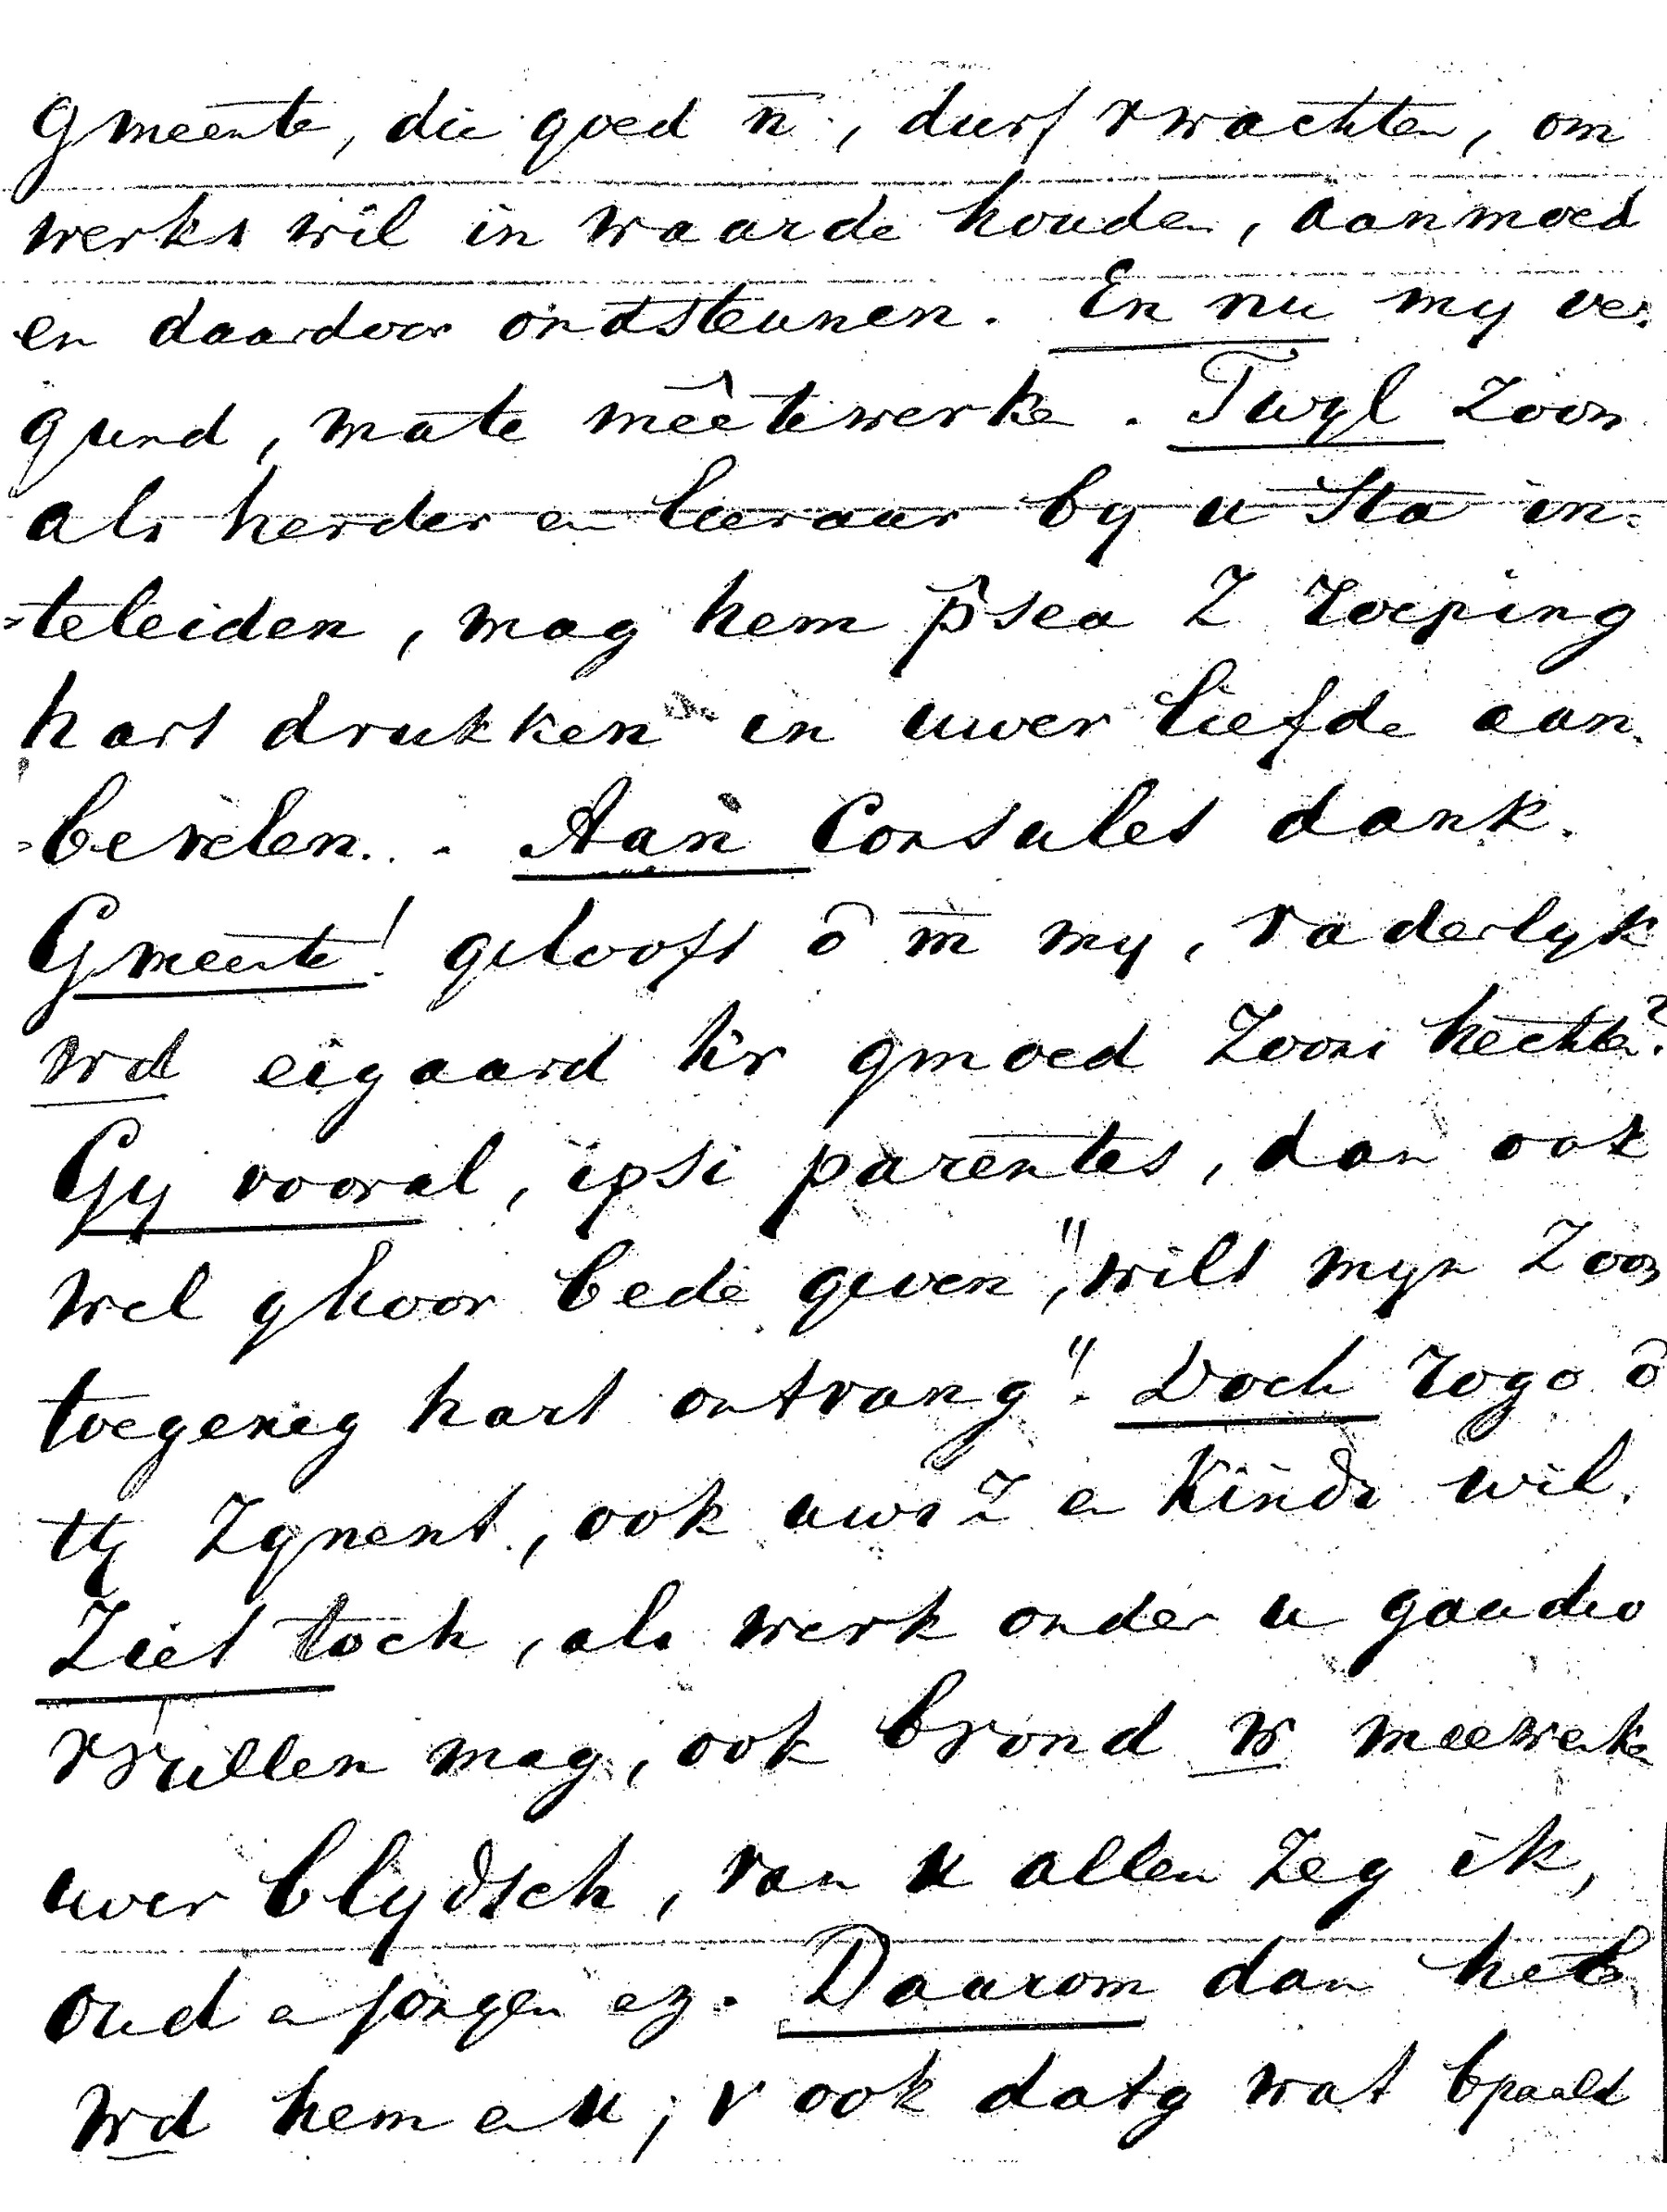 Gmeente, die goed n̄, durf vwachten, om
werks wil in waarde houden, aanmoed
en daardoor ondsteunen. En nu my ver.
gund, mate mêetewerke. Twyl Zoon
als herder en leeraar by u Sta in=
=teleiden, mag hem p̂sea Z roeping
hart drukken en uwer liefde aan
=bevelen. - Aan Consules dank.
Gmeente! gelooft ô m̄ my, vaderlyk
wd eigaard hr gmoed Zoons hechten?
Gy vooral, ipsi parentes, dan ook
wel ghoor bede geven, "wilt myn Zoon
toegeneg hart ontvang". Doch rogo ô
tt Zgnent, ook uws Z en Kinds wil.
Ziet toch, als werk onder u gaudio
vvullen mag, ook brond w meewerke
uwer blydsch, van u allen Zeg ik,
oud en jongen ez. Daarom dan heb
wd hem en u; v ook datg wat bpaald